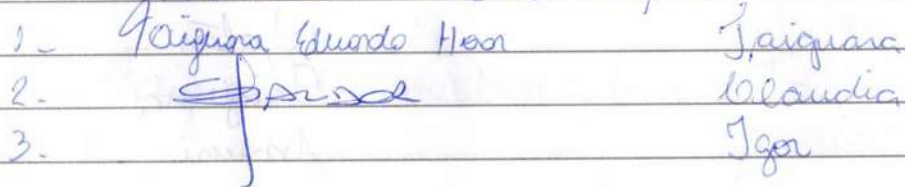 1- Taiguara Eduardo Hoor Taiguara
2. Claudia
3. Igor